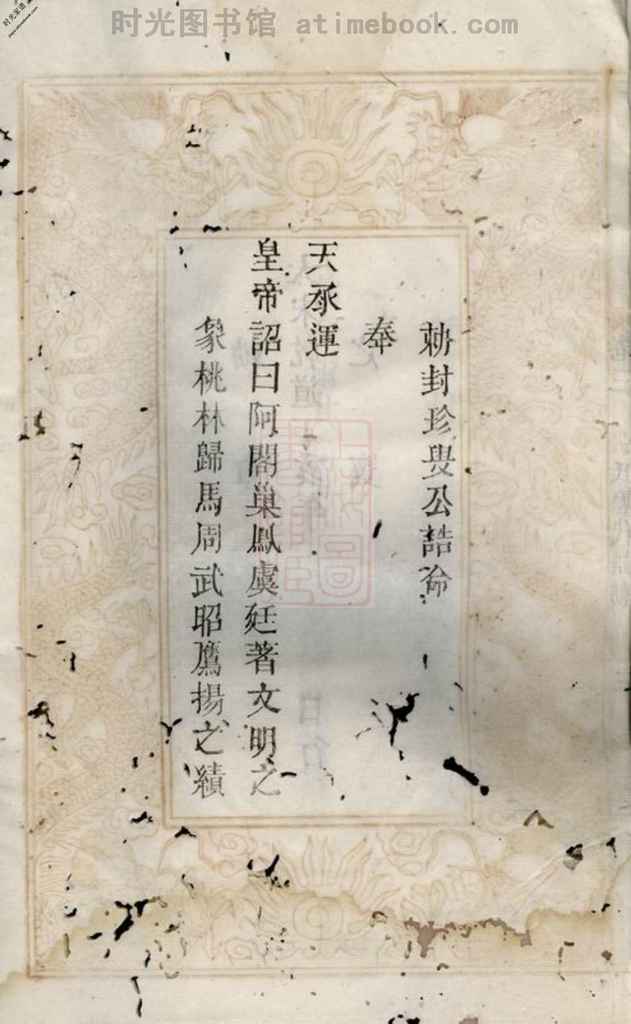 时光图书馆 atimebook.com
勑封珍叟公誥命
奉
天承運
皇帝詔曰阿閣巢鳳虞廷著文明之
象桃林歸馬周武昭鷹揚之績